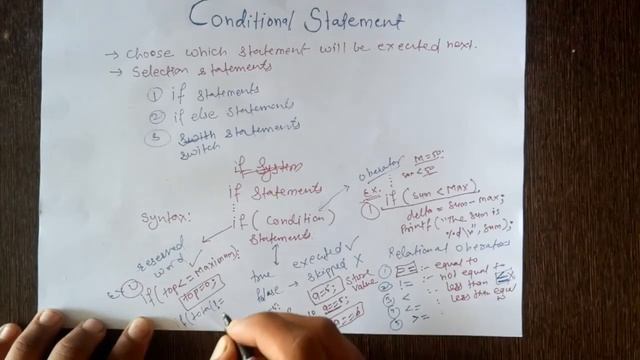 Conditional Statement
→ Choose which statement will be executed next.
→ Selection statements
① if statements
② if else statements
③ swith statements
switch
if System
if statements
Syntax: if (condition)
statements
Reserved
word
operator M=50
sum < 50
Ex:
① if (sum < Max)
delta = sum - max;
printf("The sum is
%d\n", sum);
true executed ✓
false → skipped X
Ex: ② if (top <= Maximum)
top=0;
a=5; Store
value
a==5;
Relational operators
① == :- equal to
② != :- not equal to
③ < :- less than
④ <= :- less than equal
⑤ >= :-